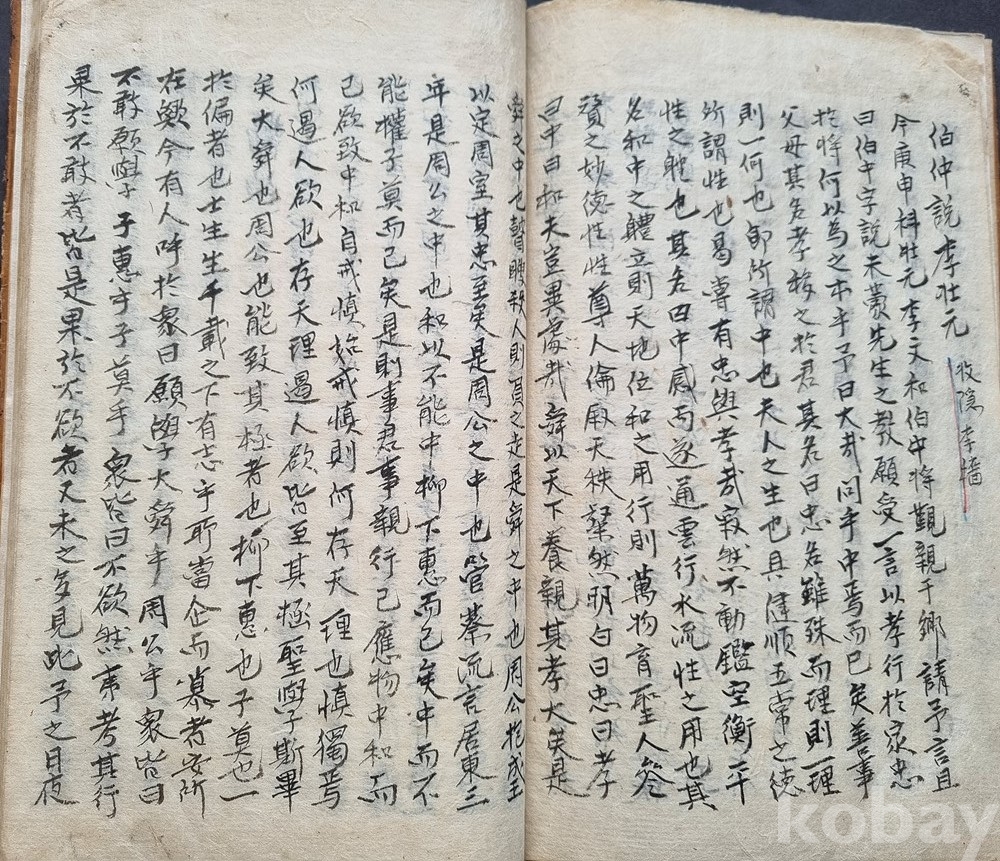 伯仲說李壯元 牧隱 李穡
今庚申科壯元李文和伯中將覲親于鄉請予言且
曰伯中字說未蒙先生之教願受一言以孝行於家忠
於將何以爲之本乎予曰大哉問乎中焉而已矣善事
父母其名孝移之於君其名曰忠名雖殊而理則一理
則一何也卽所謂中也夫人之生也具健順五常之德
所謂性也曷嘗有忠與孝哉寂然不動鑑空衡平
性之體也其名曰中感而遂通雲行水流性之用也其
名和中之體立則天地位和之用行則萬物育聖人參
贊之妙德性尊人倫天秩粲然明白曰忠曰孝
曰中曰和夫豈異處哉舜以天下養親其孝大矣是
舜之中也瞽瞍殺人則負之走是舜之中也周公抱成王
以定周室其忠至矣是周公之中也管蔡流言居東三
年是周公之中也和以不能中柳下惠而已矣中而不
能權子莫而已矣是則事君事親行己應物中和而
已欲致中和自戒愼始戒愼則何存天理也愼獨焉
何遏人欲也存天理遏人欲皆至其極聖學斯畢
矣大舜也周公也能致其極者也柳下惠也子莫也一
於偏者也士生生千載之下有志乎耶當企而慕者安所
在歟今有人呼於衆曰願學大舜乎周公乎衆皆曰
不敢願學子惠乎子莫乎衆皆曰不欲然夷考其行
果於不敢者皆是果於不欲者又未之多見此予之日夜
kobay